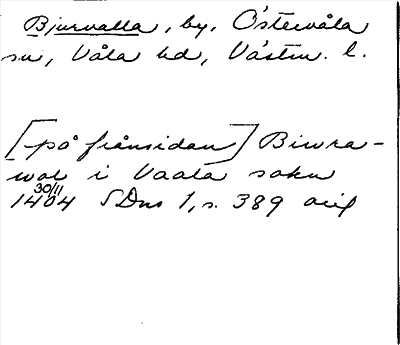 Bjurvalla, by, Östervåla
sn, Våla hd, Västm. l.
[på frånsidan] Biwra-
wal i Vaala sokn
30/11
1404 SDns 1, s. 389 orig